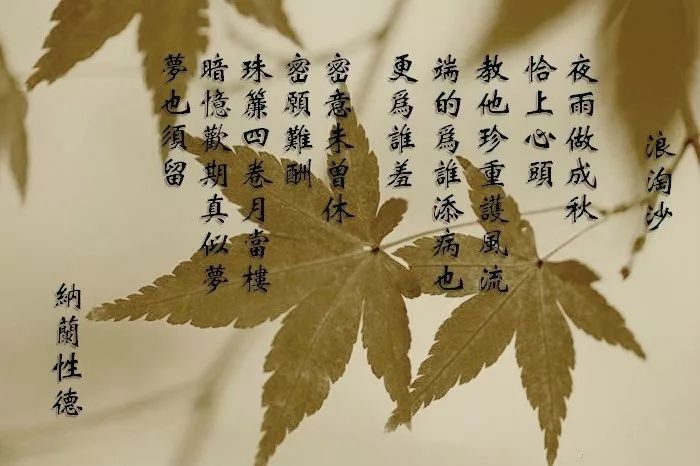 浪淘沙
夜雨做成秋
恰上心頭
教他珍重護風流
端的爲誰添病也
更爲誰羞
密意朱曾休
密願難酬
珠簾四卷月當樓
暗憶歡期真似夢
夢也須留
納蘭性德